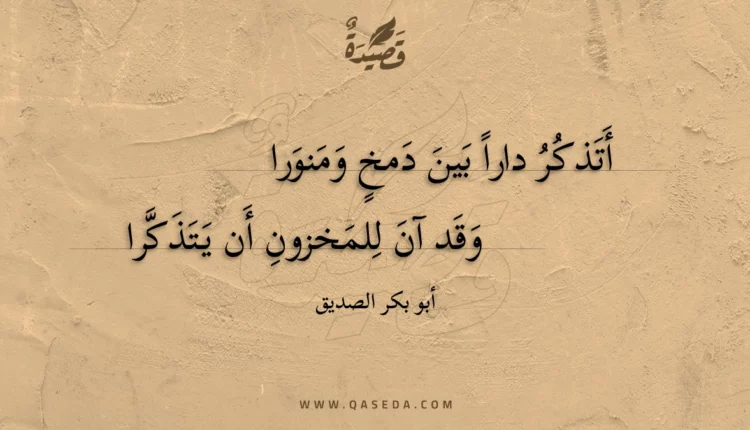 قَصِيدَةٌ
أَتَذكُرُ داراً بَينَ دَمخٍ وَمَنوَرا
وَقَد آنَ لِلمَخزونِ أَن يَتَذَكَّرا
أبو بكر الصديق
WWW.QASEDA.COM